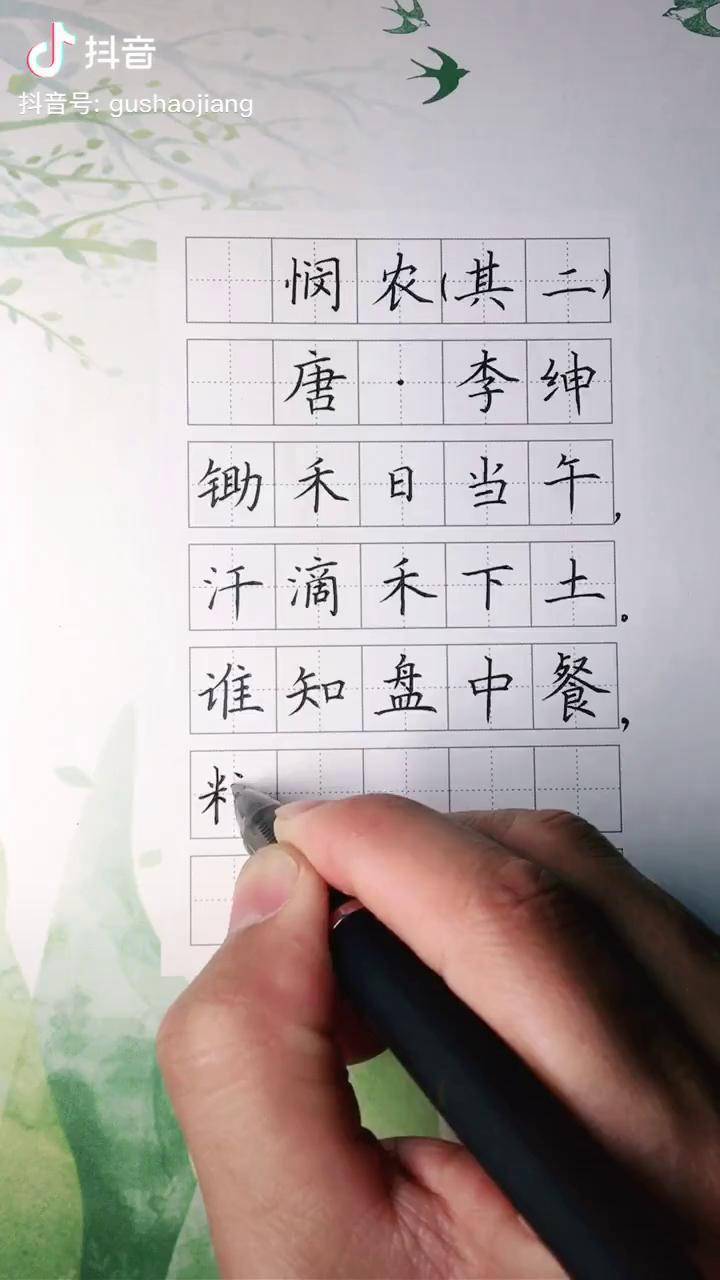 抖音
抖音号: gushaojiang
悯农(其二)
唐·李绅
锄禾日当午,
汗滴禾下土。
谁知盘中餐,